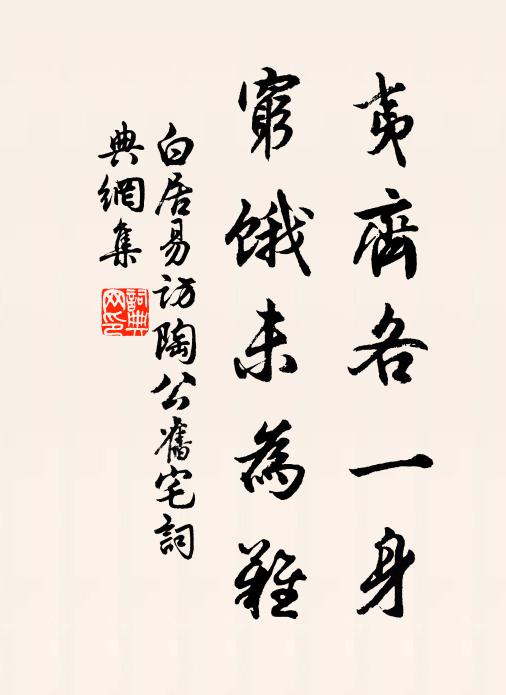 夷齊各一身
窮餓未為難
白居易訪陶公舊宅詞
典網集
詞典
网印